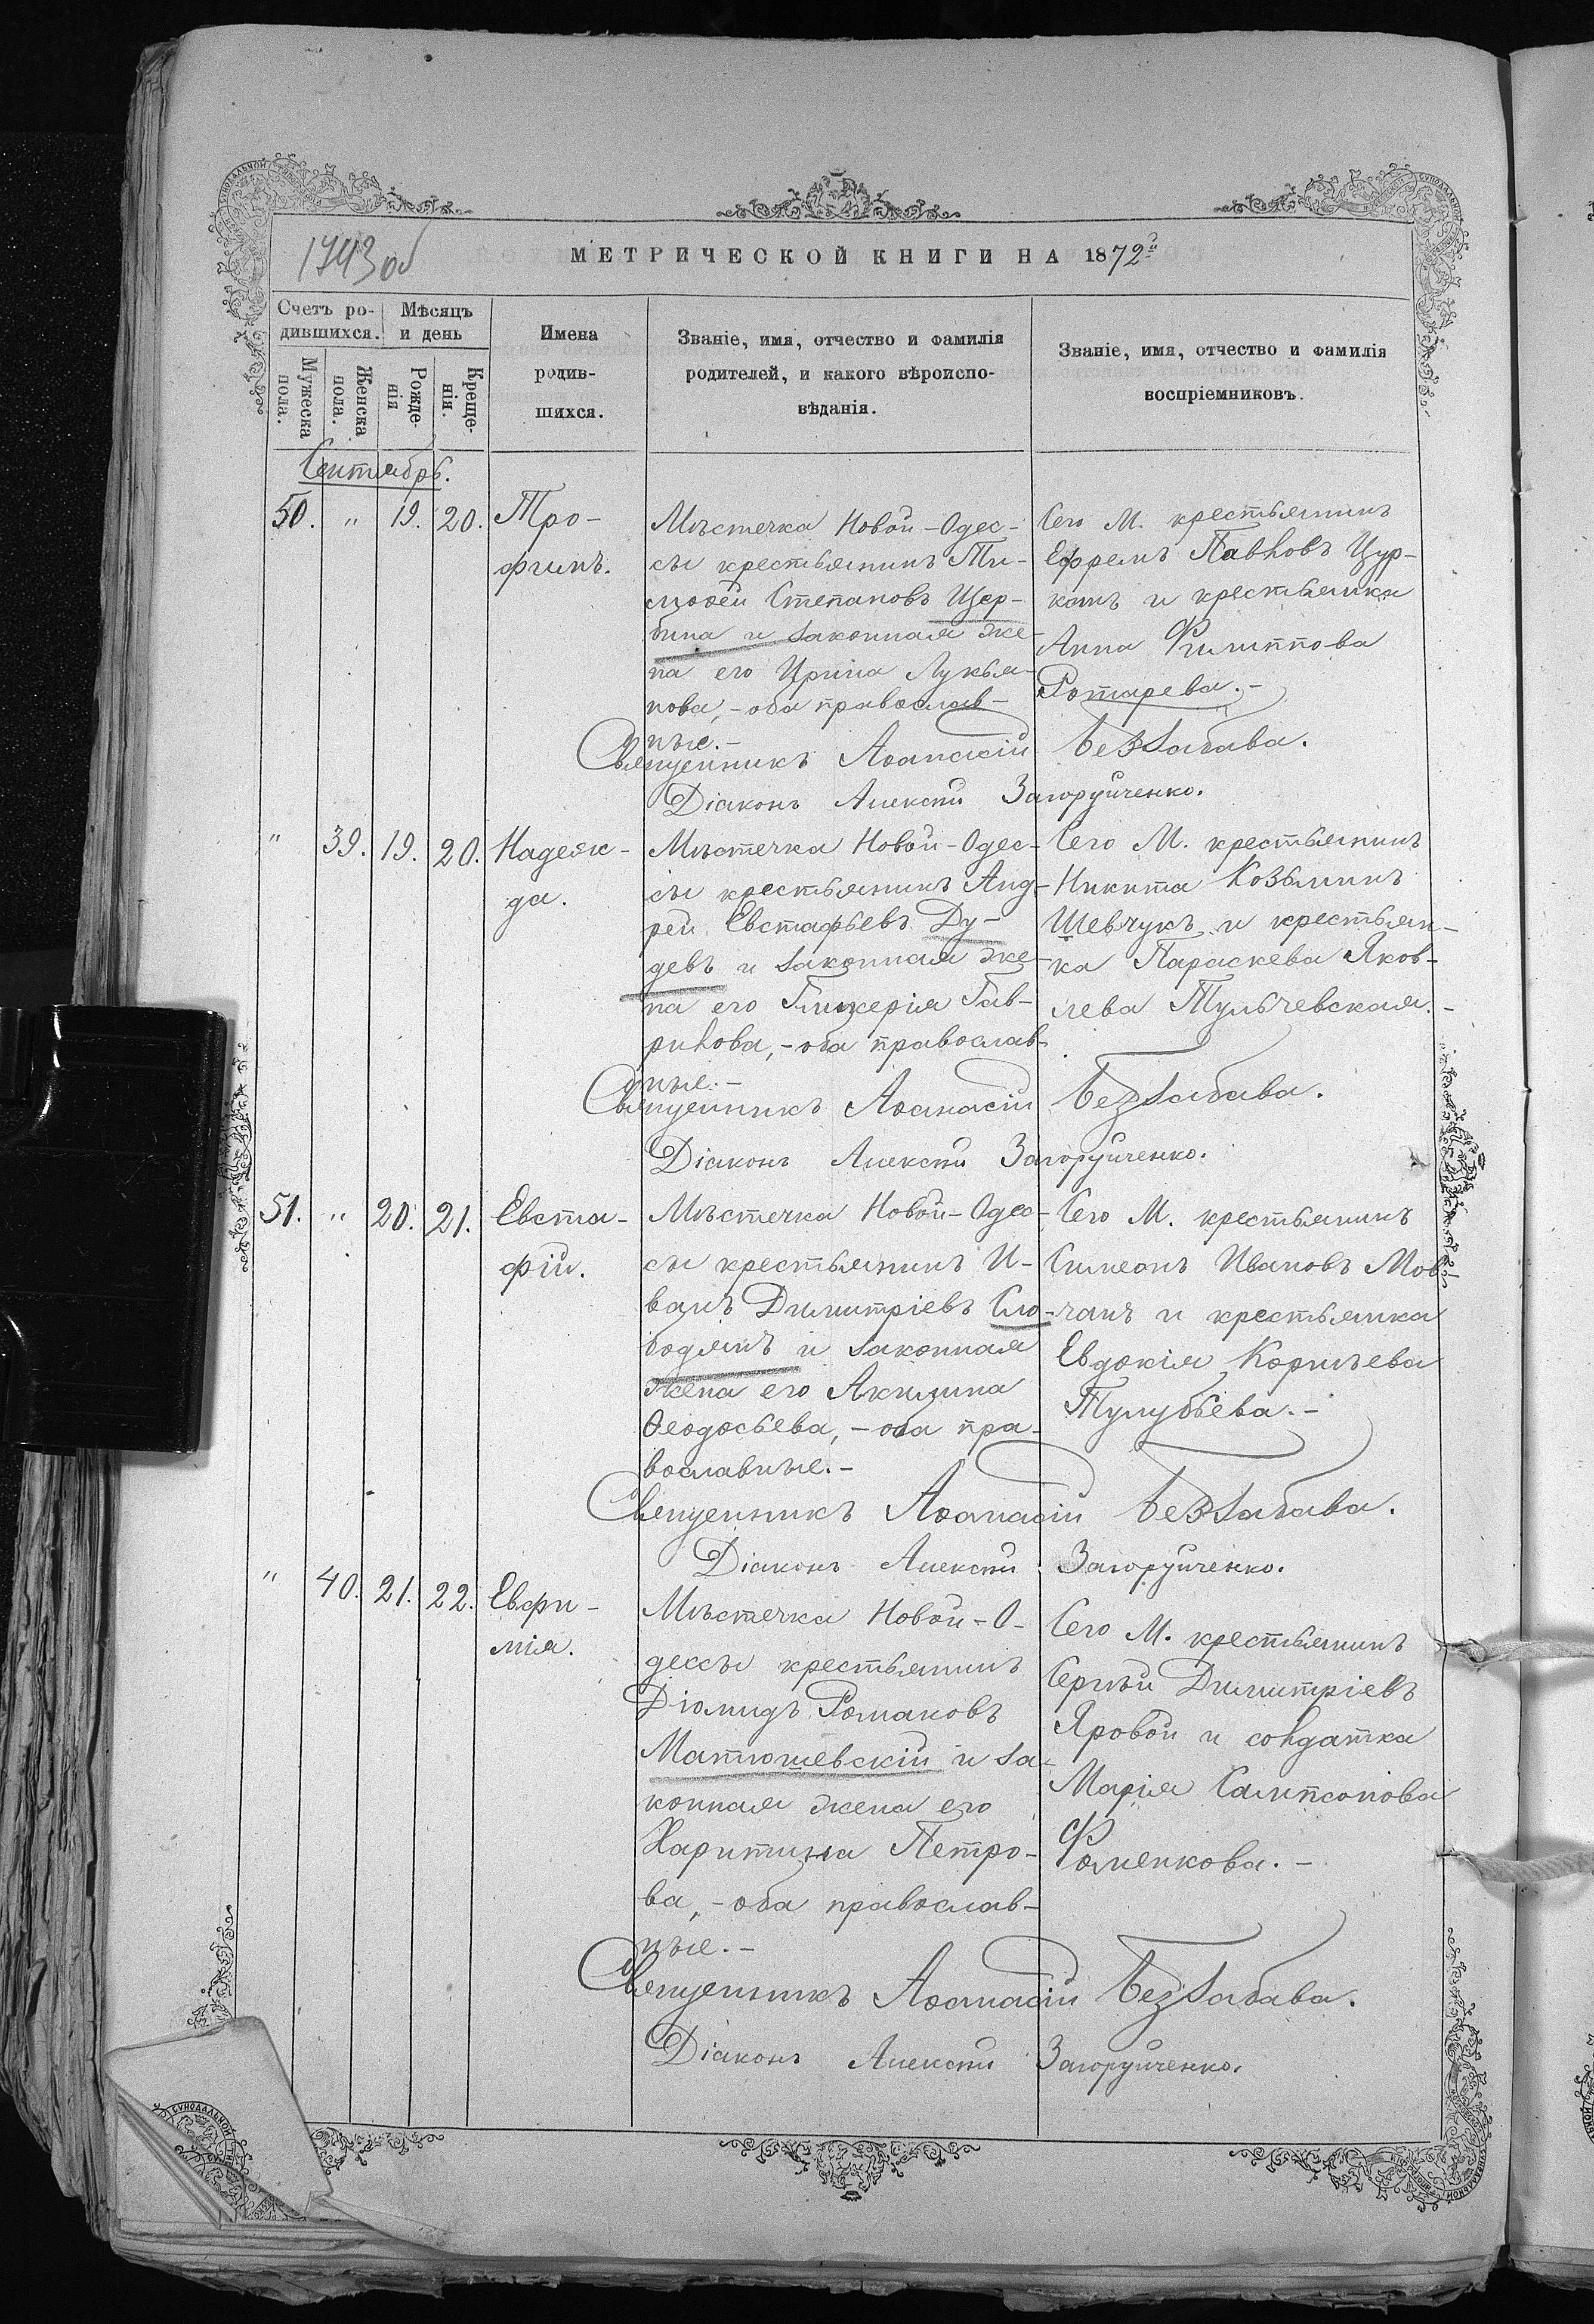 1743об
МЕТРИЧЕСКОЙ КНИГИ НА 1872й
Счетъ ро-
дившихся.
Мѣсяцъ
и день
Мужеска
пола.
Женска
пола.
Рожде-
нія
Креще-
нія.
Имена
родив-
шихся.
Званіе, имя, отчество и фамилія
родителей, и какого вѣроиспо-
вѣданія.
Званіе, имя, отчество и фамилія
воспріемниковъ.
Сентябрь.
50. " 19. 20.
Тро-
фимъ.
Мѣстечка Новой-Одес-
сы крестьянинъ Ти-
моѳей Степановъ Щер-
бина и законная же-
на его Ирина Лукья-
нова,-оба православ-
ные.-
Сего М. крестьянинъ
Ефремъ Павловъ Цур-
канъ и крестьянка
Анна Филиппова
Ротарева.-
Священникъ Аѳанасій Беззабава.
Діаконъ Алексѣй Загоруйченко.
" 39. 19. 20.
Надеж-
да.
Мѣстечка Новой-Одес-
сы крестьянинъ Анд-
рей Евстафьевъ Ду-
девъ и законная же-
на его Гликерія Гав-
рилова,-оба православ-
ные.-
Сего М. крестьянинъ
Никита Козьминъ
Шевчукъ и крестьян-
ка Параскева Яков-
лева Тульчевская.-
Священникъ Аѳанасій Беззабава.
Діаконъ Алексѣй Загоруйченко.
51. " 20. 21.
Евста-
фій.
Мѣстечка Новой-Одес-
сы крестьянинъ И-
ванъ Димитріевъ Сло-
бодянъ и законная
жена его Акилина
Ѳеодосьева,-оба пра-
вославные.-
Сего М. крестьянинъ
Симеонъ Ивановъ Мов-
чанъ и крестьянка
Евдокія Корнѣева
Тулубьева.-
Священникъ Аѳанасій Беззабава.
Діаконъ Алексѣй Загоруйченко.
" 40. 21. 22.
Евфи-
мія.
Мѣстечка Новой-О-
дессы крестьянинъ
Діомидъ Романовъ
Матюшевскій и за-
конная жена его
Харитина Петро-
ва,-оба православ-
ные.-
Сего М. крестьянинъ
Сергѣй Димитріевъ
Яровой и солдатка
Марія Сампсонова
Фоменкова.-
Священникъ Аѳанасій Беззабава.
Діаконъ Алексѣй Загоруйченко.